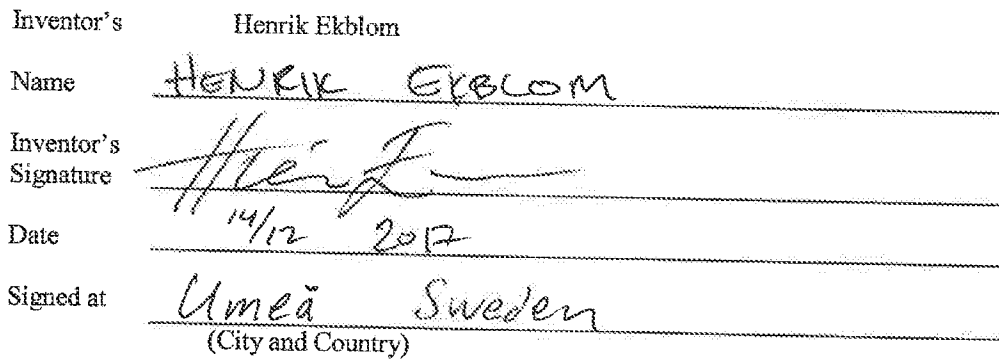 Inventor's Henrik Ekblom
Name HENRIK EKBLOM
Inventor's
Signature
Date 14/12 2017
Signed at Umeå Sweden
(City and Country)